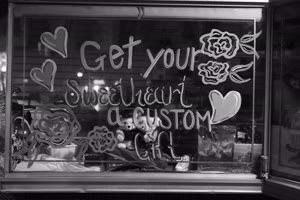 Get your
Sweetheart
a Custom
Gift